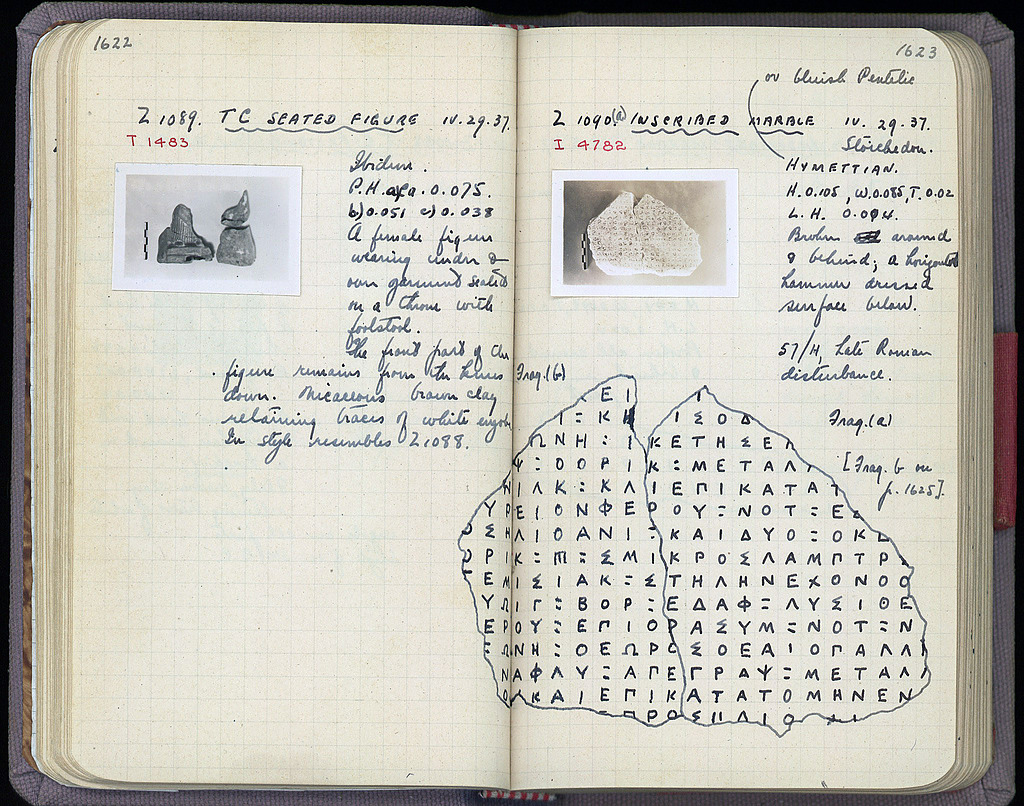 1622
Z 1089. TC SEATED FIGURE IV.29.37.
T 1483
Ibidem.
P.H. a) 0.075.
b) 0.051 c) 0.038
A female figure
wearing under &
over garment seated
on a throne with
footstool.
The front part of the
figure remains from the knees
down. Micaceous brown clay
retaining traces of white engobe
In style resembles Z 1088.
1623
or bluish Pentelic
Z 1090.(a) INSCRIBED MARBLE IV. 29.37.
I 4782
Stoichedon.
HYMETTIAN.
H. 0.105, W. 0.085, T. 0.02
L.H. 0.004.
Broken around
& behind; a horizontal
hammer dressed
surface below.
57/H, Late Roman
disturbance.
Frag. (b)
Frag. (a)
[Frag. b on
p. 1625].
Ε Ι Ι
Ι Ξ Κ Η Ι Σ Ο Δ
Ω Ν Η : Ι Κ Ε Τ Η Σ Ε Γ
Ψ Ξ Ο Ο Ρ Ι Κ Ξ Μ Ε Τ Α Λ
Ι Λ Κ Ξ Κ Λ Ι Ε Π Ι Κ Α Τ Α Τ
Υ Ρ Ε Ι Ο Ν Φ Ε Ρ Ο Υ Ξ Ν Ο Τ Ξ Ε
Ο Σ Η Λ Ι Ο Α Ν Ι Ξ Κ Α Ι Δ Υ Ο Ξ Ο Κ
Ο Ρ Ι Κ Ξ Ξ Σ Μ Ι Κ Ρ Ο Σ Λ Α Μ Π Τ Ρ
Ε Μ Ι Σ Ι Α Κ Ξ Σ Τ Η Λ Η Ν Ε Χ Ο Ν Ο Ο
Υ Ω Ι Γ Ξ Β Ο Ρ Ξ Ε Δ Α Φ Ξ Λ Υ Σ Ι Θ Ε
Ε Ρ Ο Υ Ξ Ε Π Ι Θ Ρ Α Σ Υ Μ Ξ Ν Ο Τ Ξ Ν
Ξ Ω Ν Η Ξ Θ Ε Ω Ρ Ο Σ Θ Ε Α Ι Ο Π Α Λ Λ
Ν Α Φ Λ Υ Ξ Α Π Ε Γ Ρ Α Ψ Ξ Μ Ε Τ Α Λ Λ
Ο Κ Α Ι Ε Π Ι Κ Α Τ Α Τ Ο Μ Η Ν Ε Ν
Π Ρ Ο Σ Η Λ Ι Ο